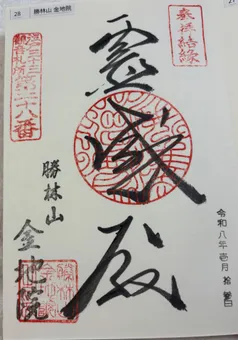 28 勝林山 金地院
奉拝結縁
第二十八番
霊感殿
勝林山
金地院
令和八年壱月拾